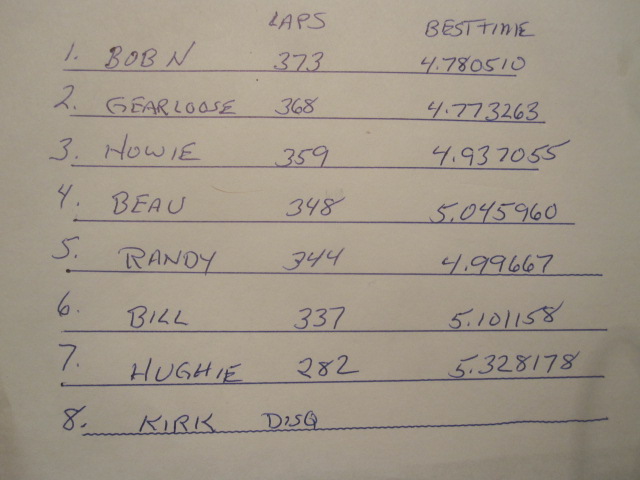 LAPS BEST TIME
1. BOB N 373 4.780510
2. GEARLOOSE 368 4.773263
3. HOWIE 359 4.937055
4. BEAU 348 5.045960
5. RANDY 344 4.99667
6. BILL 337 5.101158
7. HUGHIE 282 5.328178
8. KIRK DISQ